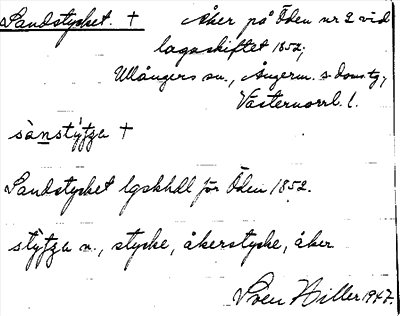 Sandstycket. † Åker på Öden nr 2 vid
lagaskiftet 1852;
Ullångers sn., Ångerm. s. domsg;
Västernorrl. l.
sànstýtza †
Sandstycket lgskhdl för Öden 1852.
stýtza n., stycke, åkerstycke, åker
Sven Hiller 1947.